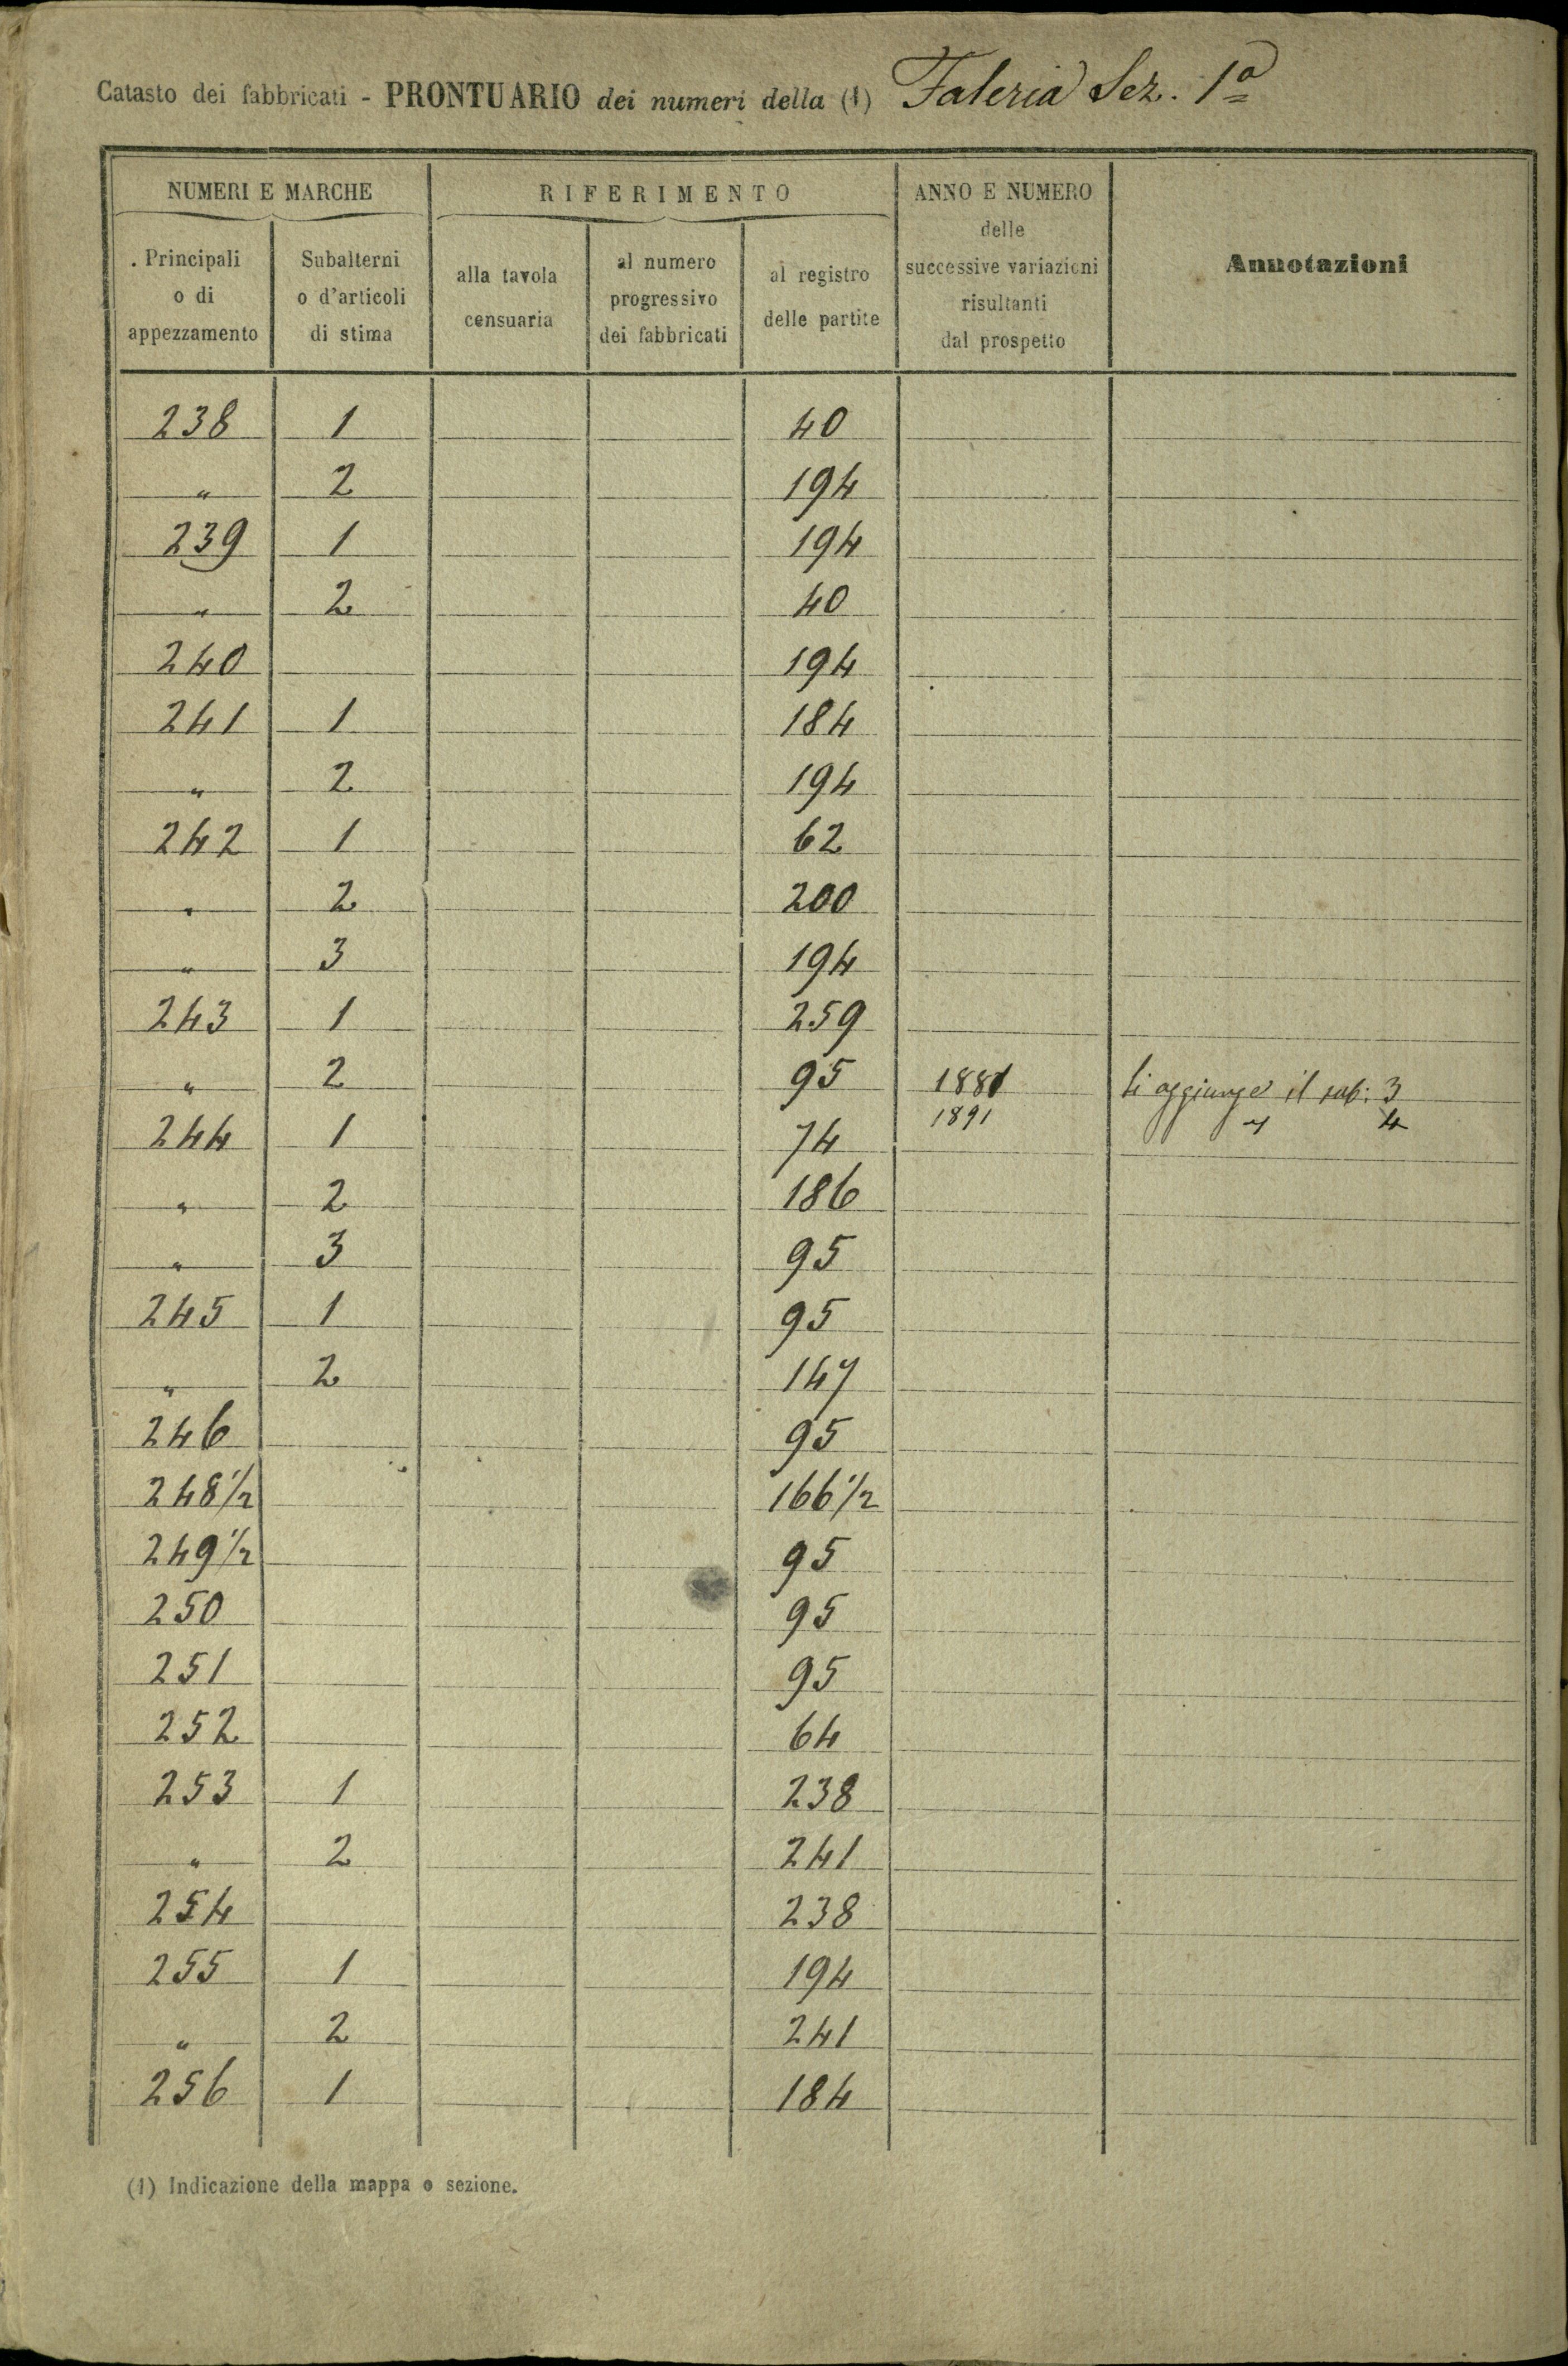 Catasto dei fabbricati - PRONTUARIO dei numeri della (1) Faleria Sez. 1ª
NUMERI E MARCHE
RIFERIMENTO
ANNO E NUMERO
delle
successive variazioni
risultanti
dal prospetto
Annotazioni
Principali
o di
appezzamento
Subalterni
o d'articoli
di stima
alla tavola
censuaria
al numero
progressivo
dei fabbricati
al registro
delle partite
238 1 40
" 2 194
239 1 194
" 2 40
240 194
241 1 184
" 2 194
242 1 62
" 2 200
" 3 194
243 1 259
" 2 95 1881 Si aggiunge il sub: 3
1891 " 4
244 1 74
" 2 186
" 3 95
245 1 95
" 2 147
246 95
248 1/2 166 1/2
249 1/2 95
250 95
251 95
252 64
253 1 238
" 2 241
254 238
255 1 194
" 2 241
256 1 184
(1) Indicazione della mappa o sezione.